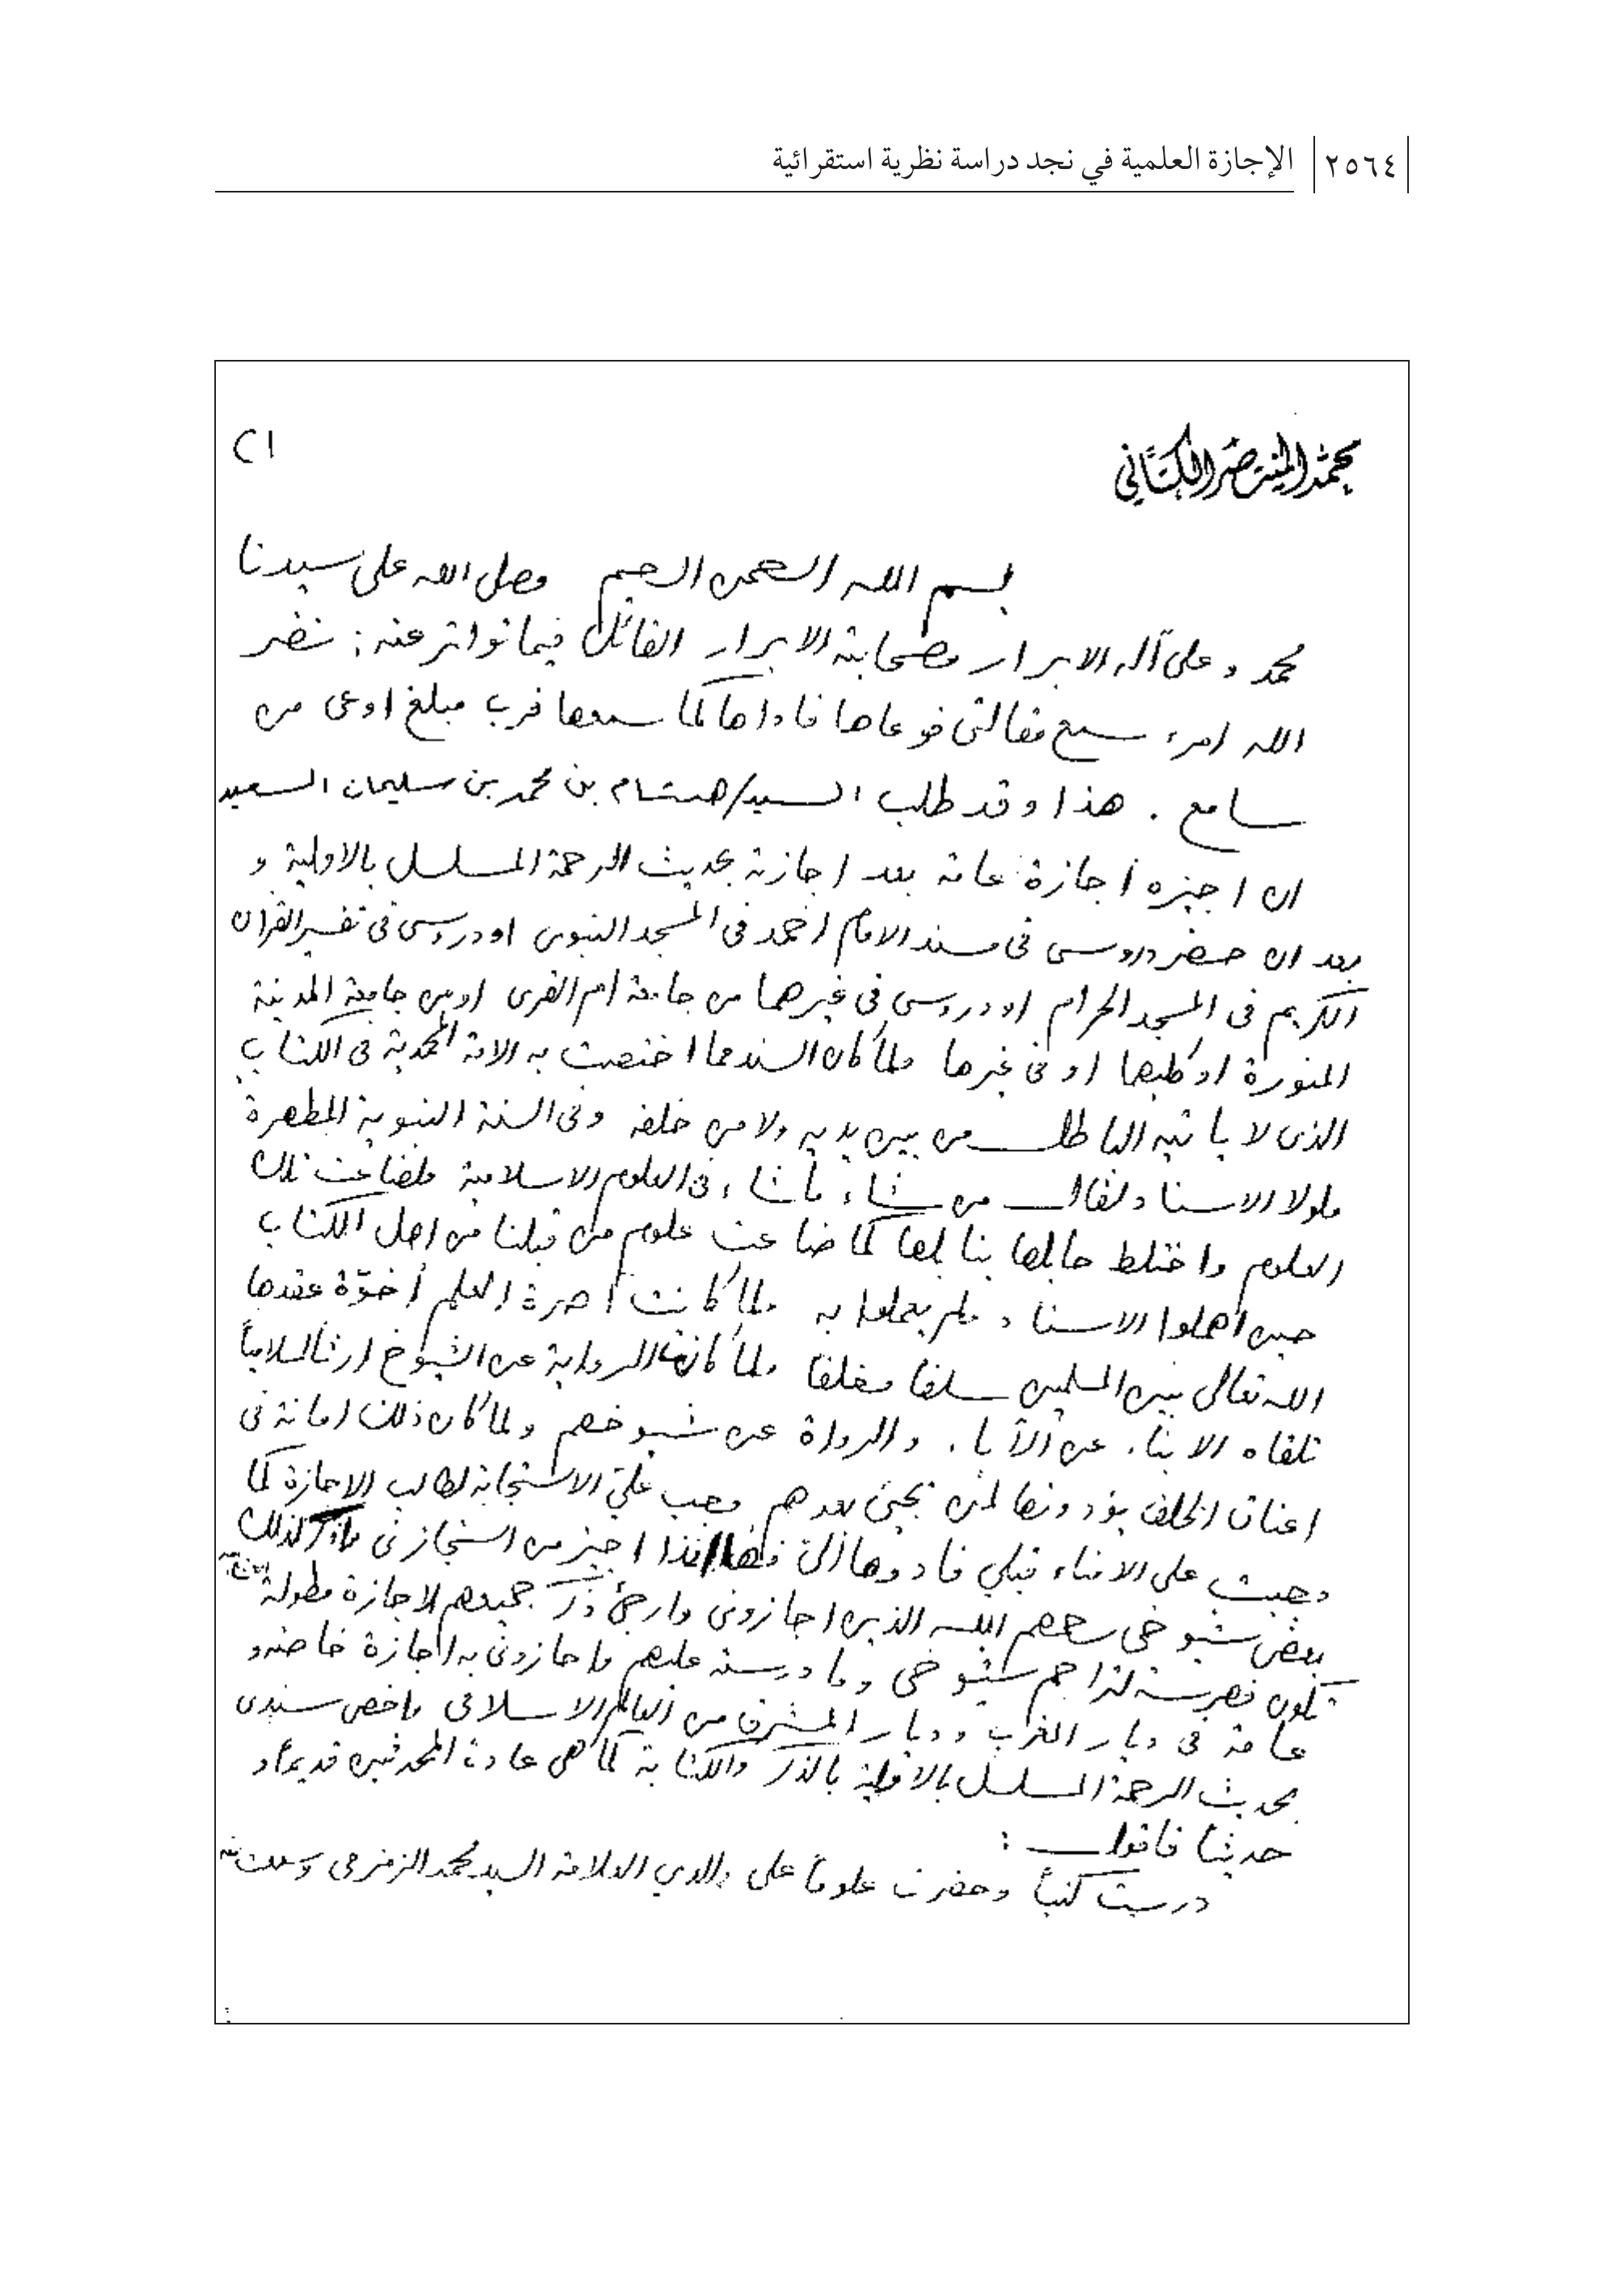 ٢٥٦٤ الإجازة العلمية في نجد دراسة نظرية استقرائية
محمد المنتصر الكتاني
(١
بسم الله الرحمن الرحيم وصلى الله على سيدنا
محمد وعلى آله الابرار وصحابته الابرار القائل فيما تواتر عنه : نضر
الله امرء سمع مقالتي فوعاها فاداها كما سمعها فرب مبلغ اوعى من
سامع . هذا وقد طلب السيد/هشام بن محمد بن سليمان السعيد
ان اجيزه اجازة عامة بعد اجازته بحديث الرحمة المسلسل بالاولية و
بعد ان حضر دروسي في مسند الامام احمد في المسجد النبوي او دروسي في تفسير القرآن
الكريم في المسجد الحرام او دروسي في غيرهما من جامعة ام القرى او من جامعة المدينة
المنورة او كليهما او في غيرها ولما كان السند مما اختصت به الامة المحمدية في الكتاب
الذي لا يأتيه الباطل من بين يديه ولا من خلفه وفي السنة النبوية المطهرة
ولولا الاسناد لقال من شاء ما شاء في العلوم الاسلامية ولضاعت تلك
العلوم واختلط حابلها بنابلها كما ضاعت علوم من قبلنا من اهل الكتاب
حين اهملوا الاسناد ولم يعملوا به ولما كانت اصرة العلم أخوّة عقدها
الله تعالى بين المسلمين سلفا وخلفا ولما كانت الرواية عن الشيوخ ارثا
تلقاه الابناء عن الآباء والرواة عن شيوخهم ولما كان ذلك امانة في
اعناق الخلف يؤدونها لمن يجيئ بعدهم وجب عليّ الاستجابة لطالب الاجازة كما
وجبت على الامناء قبلي فادوها اليّ لهذا اجيز من استجازني واذكر لذلك
بعض شيوخي رحمهم الله الذين اجازوني وارجئ ذكر جميعهم لاجازة مطولة
تكون فهرسة لتراجم شيوخي وما درسته عليهم واجازوني به اجازة خاصة و
عامة في ديار المغرب وديار المشرق من العالم الاسلامي واخص سندي
بحديث الرحمة المسلسل بالاولية بالذكر والكتابة كما هي عادة المحدثين قديماً و
حديثا فاقول :
درست كتباً وحضرت علوماً على والدي العلامة السيد محمد الزمزمي